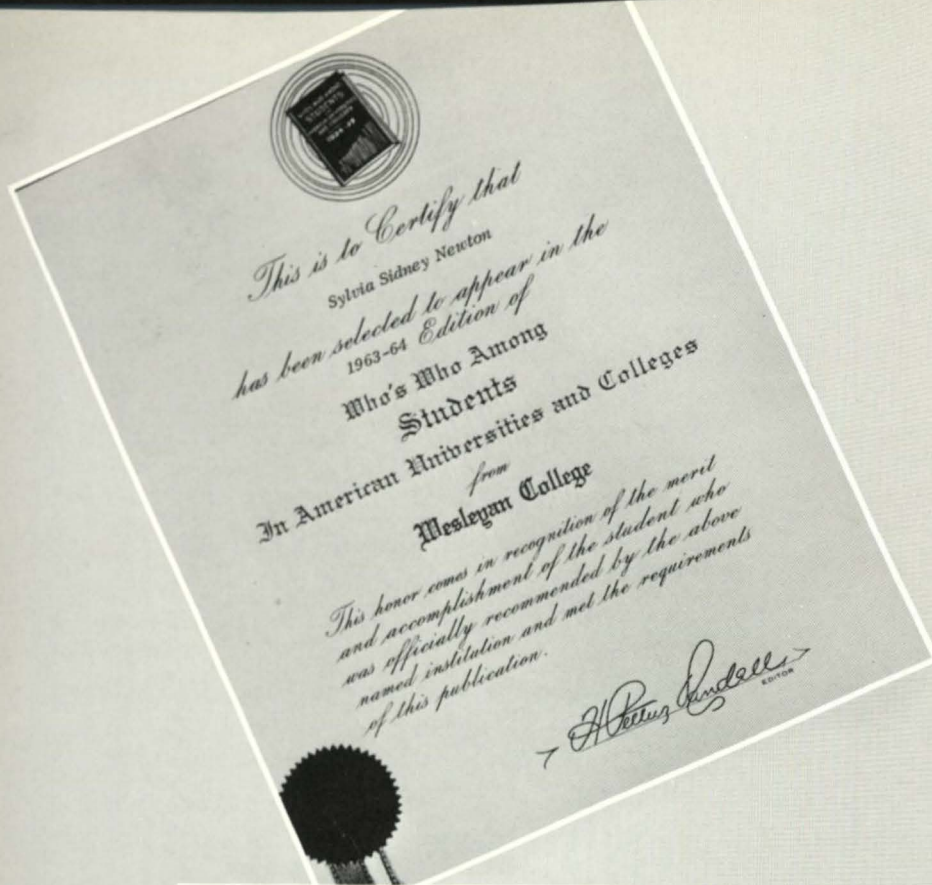 STUDENTS
This is to Certify that
Sylvia Sidney Newton
has been selected to appear in the
1963-64 Edition of
Who's Who Among
Students
In American Universities and Colleges
from
Wesleyan College
This honor comes in recognition of the merit
and accomplishment of the student who
was officially recommended by the above
named institution and met the requirements
of this publication.
H Pettus Randall
EDITOR